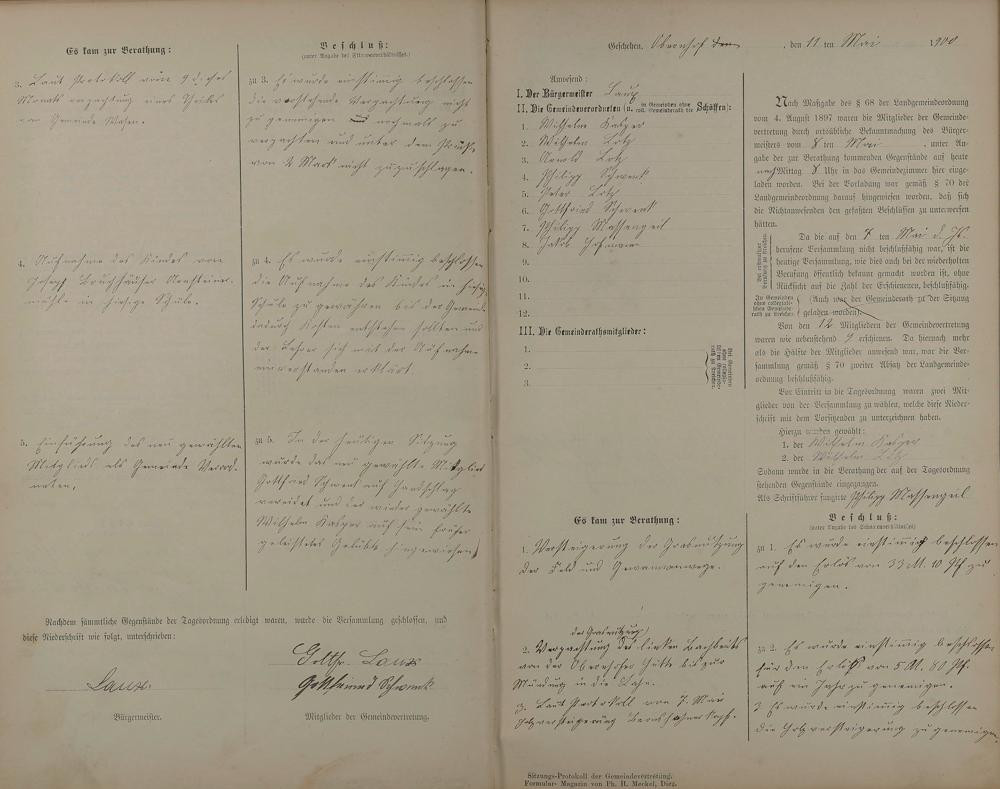 Es kam zur Berathung:
Beschluß:
(unter Angabe des Stimmenverhältnisses.)
3. Laut Protokoll vom 9 dieses
Monats verpachtung eines Theiles
von Gemeinde Wasen.
zu 3. Es wurde einstimmig beschlossen
die vorstehende Verpachtung nicht
zu genemigen nochmals zu
verpachten und unter dem
von 2 Mark nicht zuzuschlagen.
4. Aufnahme des Kindes von
Josef Bruchhäuser
mühle in hiesige Schule.
zu 4. Es wurde einstimmig beschlossen
die Aufnahme des Kindes in hiesige
Schule zu gewähren bis der Gemeinde
dadurch Kosten entstehen sollten und
der Lehrer sich mit der Aufnahme
einverstanden erklärt.
5. Einführung des neu gewählten
Mitglieds als Gemeinde Verord-
neten.
zu 5. In der heutigen Sitzung
wurde das neu gewählte Mitglied
Gottfried Schwenk auf Handschlag
vereidet und der wieder gewählte
Wilhelm Kasper auf sein früher
geleistetes Gelübte hingewiesen
Nachdem sämmtliche Gegenstände der Tagesordnung erledigt waren, wurde die Versammlung geschlossen, und
diese Niederschrift wie folgt, unterschrieben:
Gottfr. Laux
Laux
Gottfried Schwenk
Bürgermeister.
Mitglieder der Gemeindevertretung.
Geschehen, Obernhof den, den 11 ten Mai 1900
Anwesend:
I. Der Bürgermeister Laux
II. Die Gemeindeverordneten (u. in Gemeinden ohne coll. Gemeinderath die Schöffen):
1. Wilhelm Kasper
2. Wilhelm Lotz
3. Arnold Lotz
4. Philipp Schwenk
5. Peter Lotz
6. Gottfried Schwenk
7. Philipp Massengeil
8. Jakob Hofmann
9.
10.
11.
12.
III. Die Gemeinderathsmitglieder:
1.
2.
3.
Nach Maßgabe des § 68 der Landgemeindeordnung
vom 4. August 1897 waren die Mitglieder der Gemeinde-
vertretung durch ortsübliche Bekanntmachung des Bürger-
meisters vom 8 ten Mai, unter An-
gabe der zur Berathung kommenden Gegenstände auf heute
nach Mittag 8 Uhr in das Gemeindezimmer hier einge-
laden worden. Bei der Vorladung war gemäß § 70 der
Landgemeindeordnung darauf hingewiesen worden, daß sich
die Nichtanwesenden den gefaßten Beschlüssen zu unterwerfen
hätten.
Da die auf den 7 ten Mai d. Js.
berufene Versammlung nicht beschlußfähig war, ist die
heutige Versammlung, wie dies auch bei der wiederholten
Berufung öffentlich bekannt gemacht worden ist, ohne
Rücksicht auf die Zahl der Erschienenen, beschlußfähig.
(Auch war der Gemeinderath zu der Sitzung
geladen worden).
Von den 12 Mitgliedern der Gemeindevertretung
waren wie nebenstehend 9 erschienen. Da hiernach mehr
als die Hälfte der Mitglieder anwesend war, war die Ver-
sammlung gemäß § 70 zweiter Absatz der Landgemeinde-
ordnung beschlußfähig.
Vor Eintritt in die Tagesordnung waren zwei Mit-
glieder von der Versammlung zu wählen, welche diese Nieder-
schrift mit dem Vorsitzenden zu unterzeichnen haben.
Hierzu wurden gewählt:
1. der Wilhelm Kasper
2. der Wilhelm Lotz
Sodann wurde in die Berathung der auf der Tagesordnung
stehenden Gegenstände eingegangen.
Als Schriftführer fungirte Philipp Massengeil
Es kam zur Berathung:
Beschluß:
(unter Angabe des Stimmenverhältnisses)
1. Versteigerung der Grasnutzung
der Feld und Gewannenwege.
zu 1. Es wurde einstimmig beschlossen
auf den Erlös von 33 M. 10 Pf zu
genemigen.
der Grasnutzung
2. Verpachtung des linken Bachbeits
von der Obernhofer Hütte bis zur
Mündung in die Lahn.
zu 2. Es wurde einstimmig beschlossen
für den Erlös von 5 M. 80 Pf.
auf ein Jahr zu genemigen.
3. Laut Protokoll vom 7. Mai
Holzversteigerung
3 Es wurde einstimmig beschlossen
die Holzversteigerung zu genemigen.
Sitzungs-Protokoll der Gemeindevertretung.
Formular-Magazin von Ph. H. Meckel, Diez.